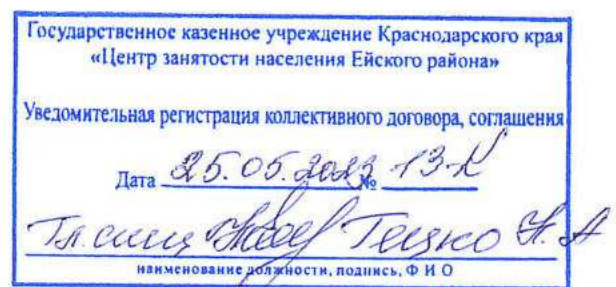 Государственное казенное учреждение Краснодарского края
«Центр занятости населения Ейского района»
Уведомительная регистрация коллективного договора, соглашения
Дата 25.05.2023 № 13-К
Гл. спец Гецко Н. А
наименование должности, подпись, Ф И О